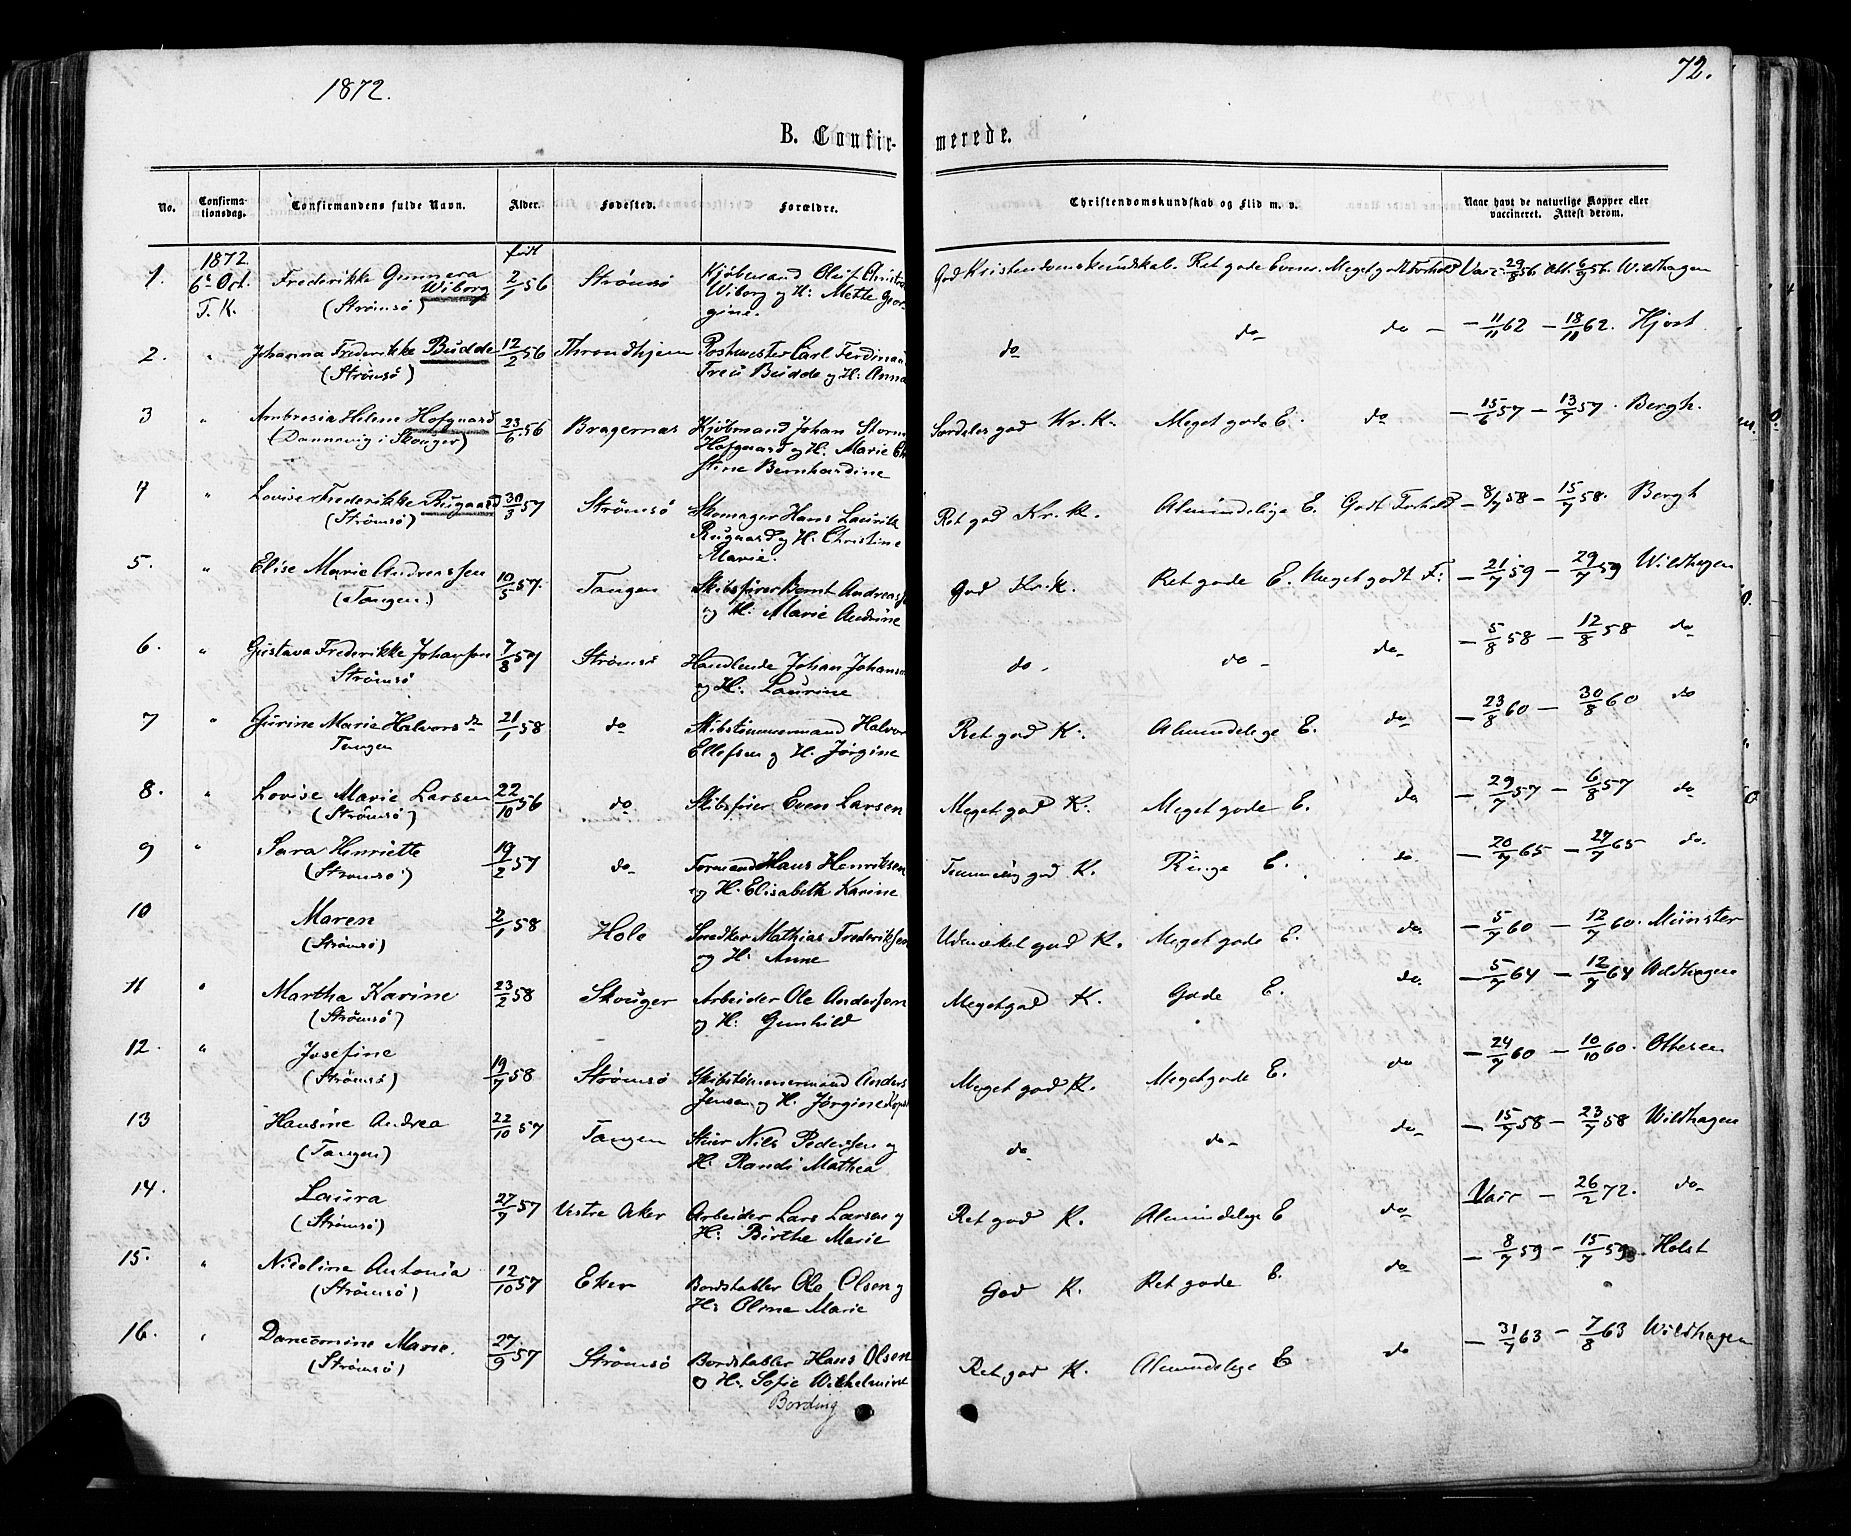 1872.
72.
B. Confirmerede.
No. Confirmationsdag. Confirmandens fulde Navn. Alder. Fødested. Forældre. Christendomskundskab og Flid m. v. Naar havt de naturlige Kopper eller vaccineret. Attest derom.
1872 født
1. 6te Oct. Frederikke Gunnera 2/1 56 Strømsø Kjøbmand Oluf God Kristendomskundskab. Ret gode Evner. Meget godt Forhold Vacc. 29/8 56 Att. 6/9 56. Wildhagen
T. K. Wiborg Wiborg og H: Mette Geor-
(Strømsø) gine.
2. " Johanna Frederikke Budde 12/2 56 Throndhjem Postmester Carl Ferdinand do do do - - 11/11 62 - 18/11 62. Hjort
(Strømsø) Treu Budde og H: Anna
3 " Ambrosia Helene Hofgaard 23/6 56 Bragernæs Kjøbmand Johan Storm Særdeles god Kr. K. Meget gode E. do - 15/6 57 - 13/7 57. Bergh.
(Dannevig i Skouger) Hofgaard og H: Marie
stine Bernhardine
4 " Lovise Frederikke Rugaard 30/3 57 Strømsø Skomager Hans Lauritz Ret god Kr. K. Almindelige E. Godt Forhold - 8/7 58 - 15/7 58. Bergh
(Strømsø) Rugaard og H. Christine
Marie.
5. " Elise Marie Andreassen 10/5 57. Tangen Skibsfører Bernt Andreass God Kr. K. Ret gode E. Meget godt F: - 21/7 59 - 29/7 59 Wildhagen
(Tangen) og H. Marie Andrine
6. " Gustava Frederikke Johansen 7/8 57 Strømsø Handlende Johan Johansen do - do - do - - 5/8 58 - 12/8 58 do
Strømsø og H. Laurine
7 " Gurine Marie Halvorsdr 21/1 58 do Skibstømmermand Halvor Ret god K. Almindelige E. do - 23/8 60 - 30/8 60 do
Tangen Ellefsen og H. Jørgine
8. " Lovise Marie Larsen 22/10 56 do Skibsfører Even Larsen Meget god K. Meget gode E. do - 29/7 57 - 6/8 57 do
(Strømsø)
9 " Sara Henriette 19/2 57 do Formand Hans Henriksen god K. Ringe E. do - 20/7 65 - 27/7 65 do
(Strømsø) og H. Elisabeth Karine
10 Maren 2/1 58 Hole Snedker Mathias Frederiksen Udmærket god K. Meget gode E. do - 5/7 60 - 12/7 60. Münster
(Strømsø) og H. Anne
11 " Martha Karine 23/2 58 Skouger Arbeider Ole Andersen Meget god K. Gode E. do - 5/7 64 - 12/7 64 Wildhagen
(Strømsø) og H: Gunhild
12. " Josefine 19/7 58 Strømsø Skibstømmermand Anders Meget god K. Meget gode E. do - 24/7 60 - 10/10 60. Ottesen
(Strømsø) Jensen og H. Jørgine
13 Hansine Andrea 22/10 57 Tangen Nils Pedersen og do do - do - - 15/7 58 - 23/7 58 Wildhagen
(Tangen) H. Randi Mathea
14. Laura 27/7 57 Vestre Aker Arbeider Lars Larsen og Ret god K. Almindelige E do - Vacc - 26/2 72. do
(Strømsø) H: Birthe Marie
15. " Nicoline Antonia 12/10 57 Eker Bordstabler Ole Olsen og God K. Ret gode E. do - 8/7 59 - 15/7 59. Holst
(Strømsø) H: Oline Marie
16. " Marie. 27/9 57 Strømsø Bordstabler Hans Olsen Ret god K. Almindelige E do - 31/7 63 - 7/8 63 Wildhagen
(Strømsø) og H. Sofie Wilhelmine
Bording